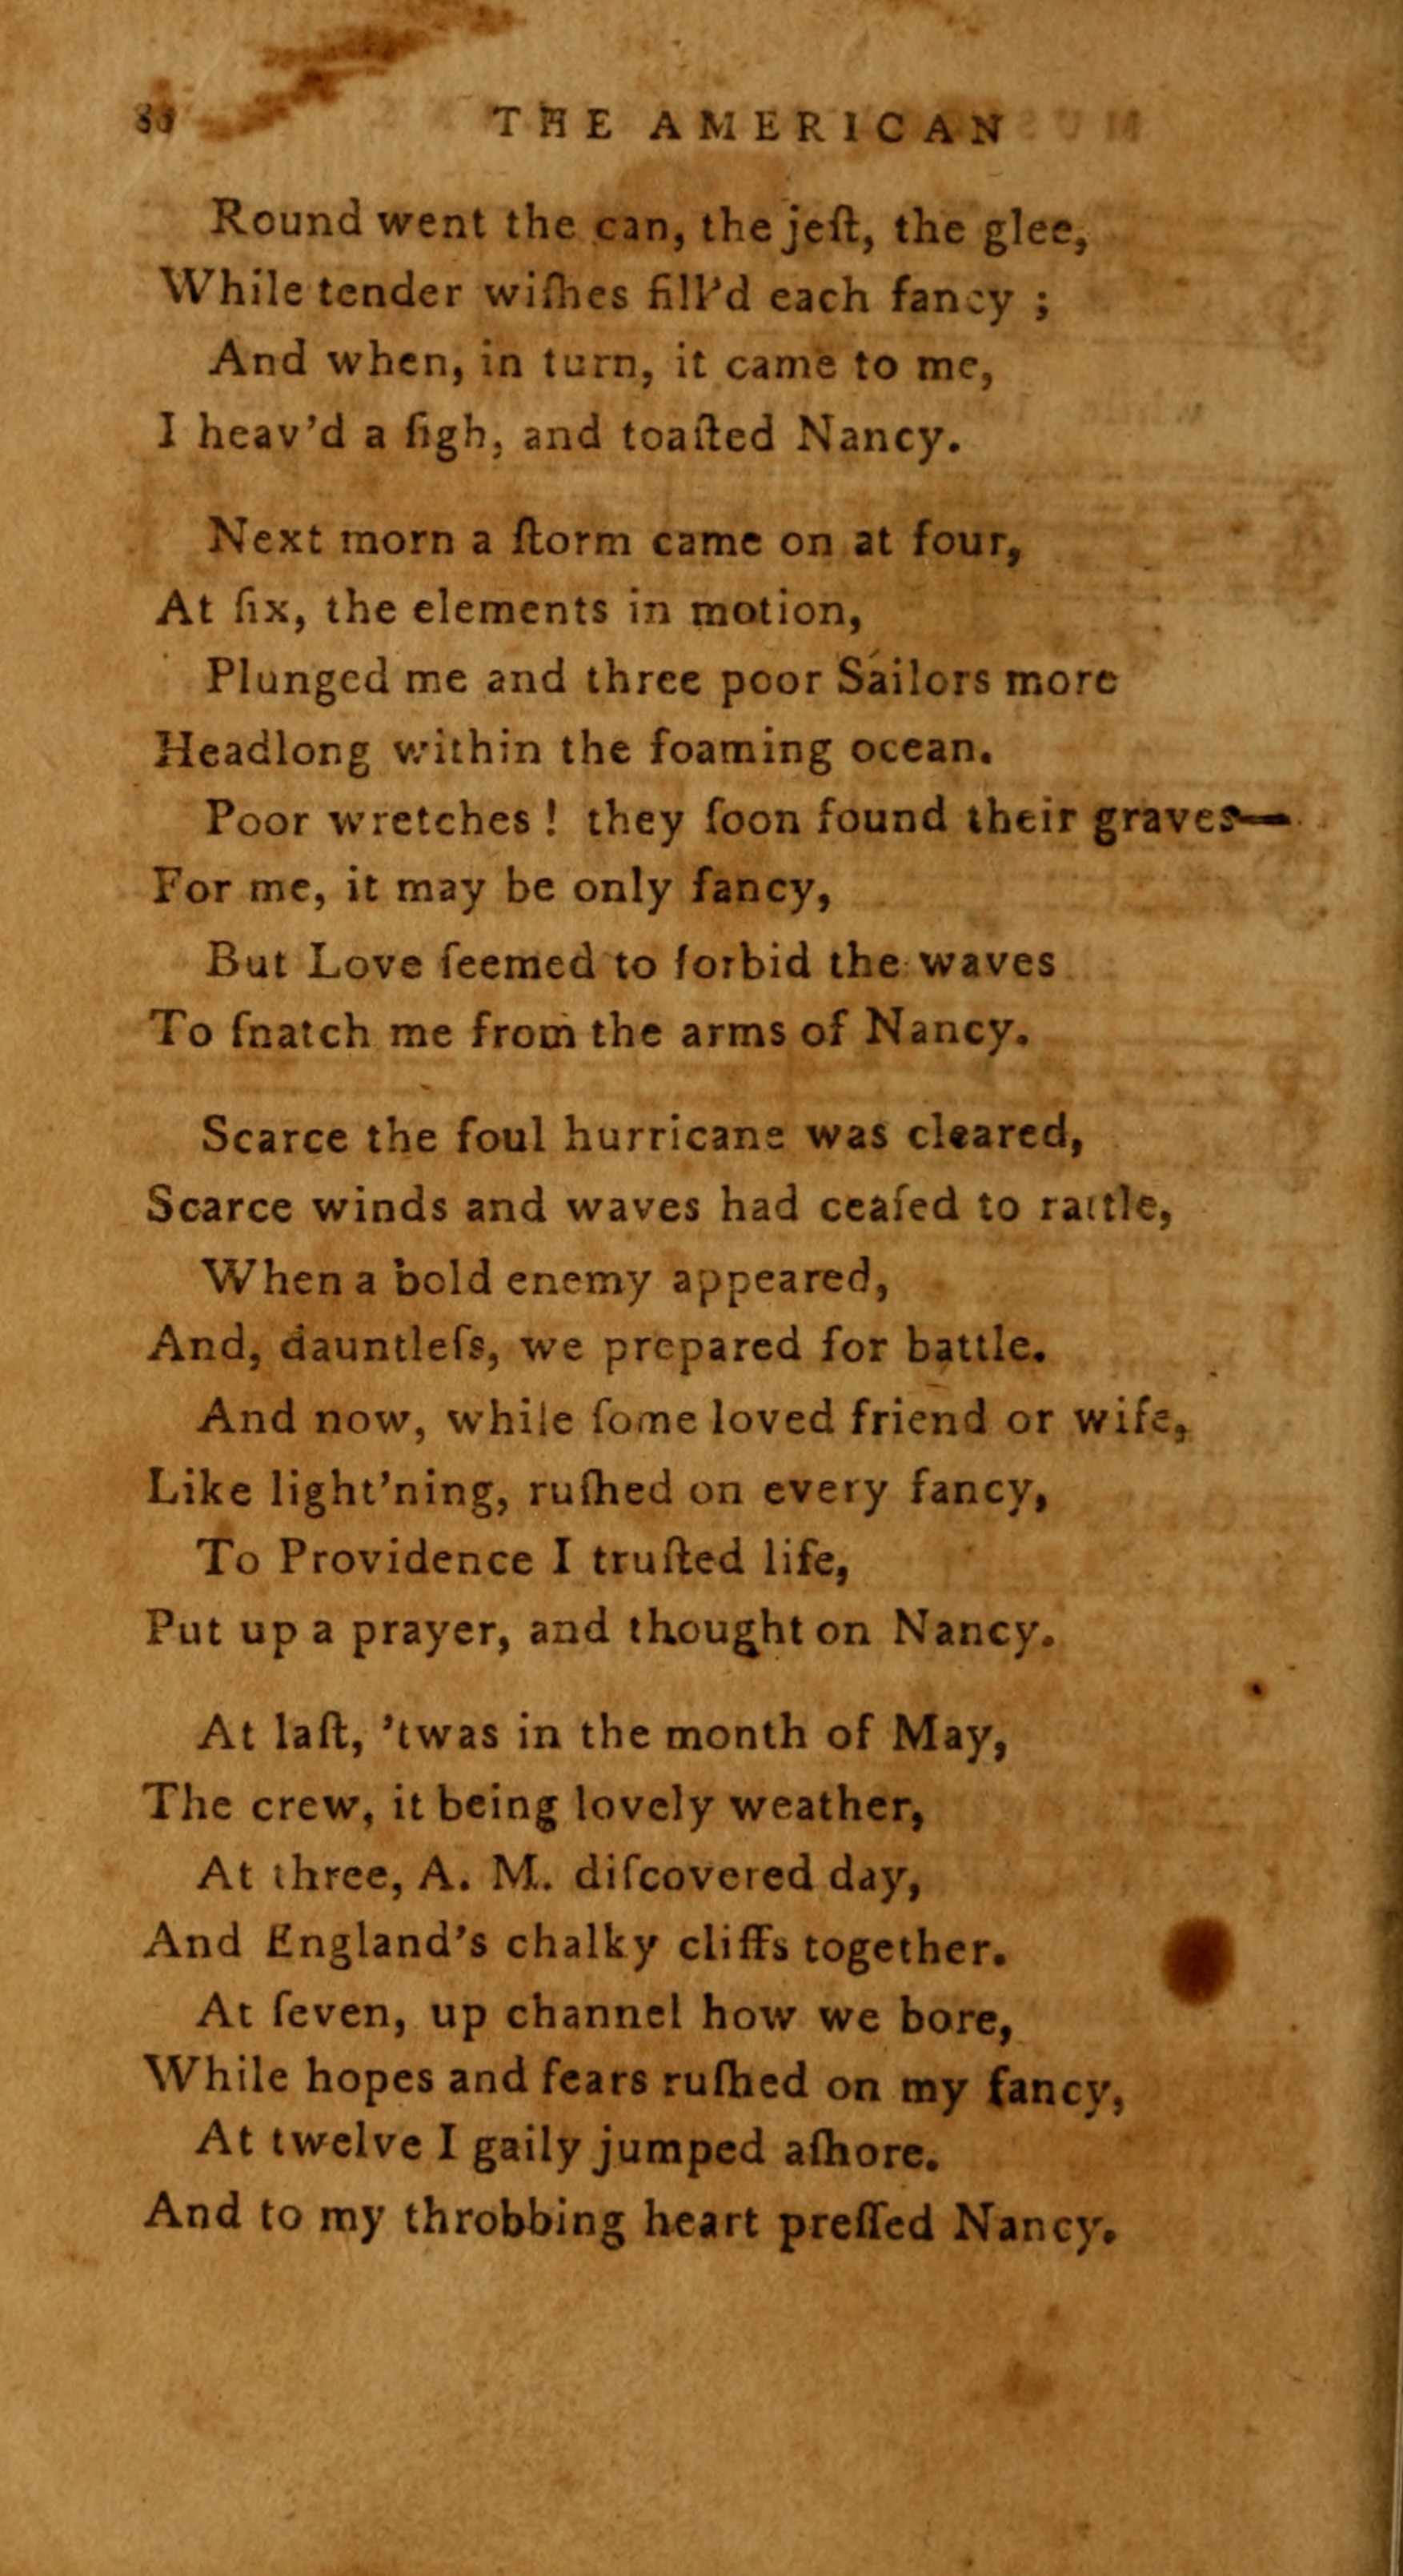 THE AMERICAN
Round went the can, the jeſt, the glee,
While tender wiſhes fill'd each fancy ;
And when, in turn, it came to me,
I heav'd a ſigh, and toaſted Nancy.
Next morn a ſtorm came on at four,
At ſix, the elements in motion,
Plunged me and three poor Sailors more
Headlong within the foaming ocean.
Poor wretches ! they ſoon found their graves—
For me, it may be only fancy,
But Love ſeemed to forbid the waves
To ſnatch me from the arms of Nancy.
Scarce the foul hurricane was cleared,
Scarce winds and waves had ceaſed to rattle,
When a bold enemy appeared,
And, dauntleſs, we prepared for battle.
And now, while ſome loved friend or wife,
Like light'ning, ruſhed on every fancy,
To Providence I truſted life,
Put up a prayer, and thought on Nancy.
At laſt, 'twas in the month of May,
The crew, it being lovely weather,
At three, A. M. diſcovered day,
And England's chalky cliffs together.
At ſeven, up channel how we bore,
While hopes and fears ruſhed on my fancy,
At twelve I gaily jumped aſhore.
And to my throbbing heart preſſed Nancy.